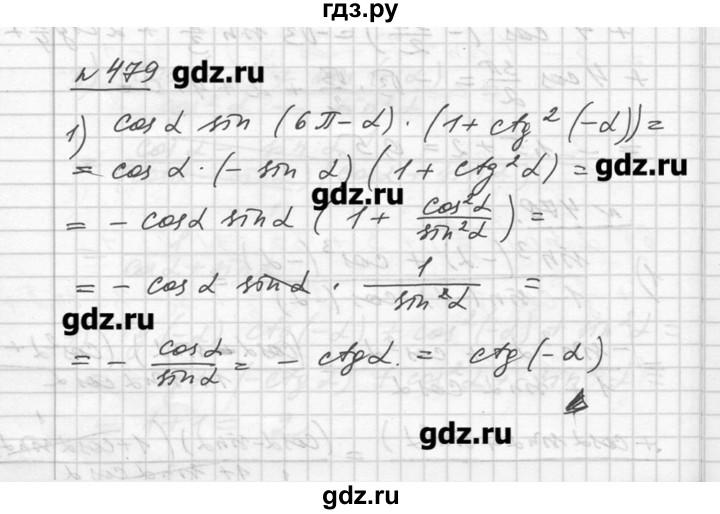 гдз.ру
№ 479 gdz.ru
1) cos α sin (6π - α) · (1 + ctg² (-α)) =
= cos α · (- sin α) (1 + ctg² α) = gdz.ru
gdz.ru
= - cos α sin α (1 + cos²α / sin²α) =
= - cos α sin α · 1 / sin²α =
gdz.ru
= - cos α / sin α = - ctg α. = ctg (-α)
gdz.ru
gdz.ru